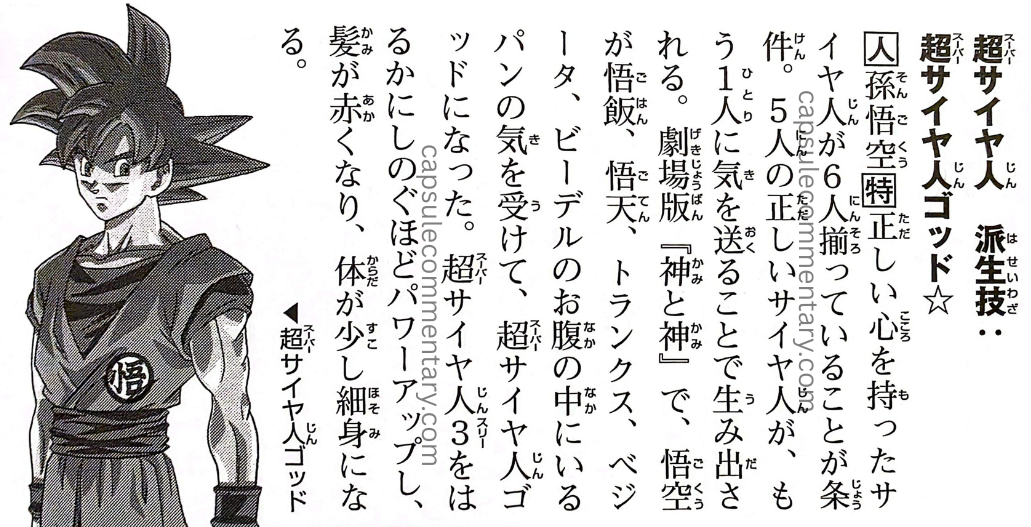 超サイヤ人　派生技：
超サイヤ人ゴッド☆
人孫悟空特正しい心を持ったサ
イヤ人が6人揃っていることが条
件。5人の正しいサイヤ人が、も
う1人に気を送ることで生み出さ
れる。劇場版『神と神』で、悟空
が悟飯、悟天、トランクス、ベジ
ータ、ビーデルのお腹の中にいる
パンの気を受けて、超サイヤ人ゴ
ッドになった。超サイヤ人3をは
るかにしのぐほどパワーアップし、
髪が赤くなり、体が少し細身にな
る。
◀超サイヤ人ゴッド
悟
capsulecommentary.com
capsulecommentary.com